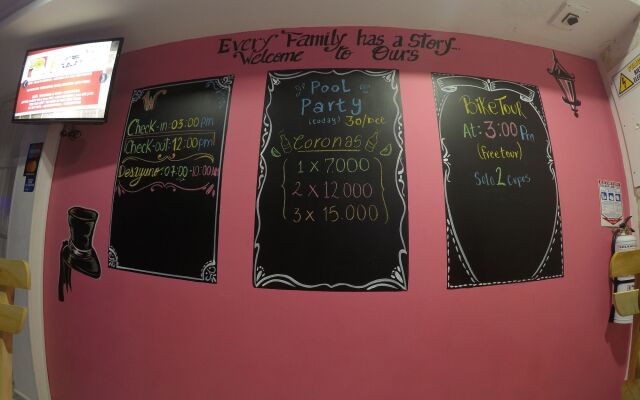 Every Family has a Story...
Welcome to Ours
W
Check-in: 03:00 pm
Check-out: 12:00 pm
Desayuno: 07:00 - 10:00 am
Pool
Party
(today) 30/Dec
Coronas
1 x 7.000
2 x 12.000
3 x 15.000
Bike Tour
At: 3:00 Pm
(free tour)
Solo 2 Cupos